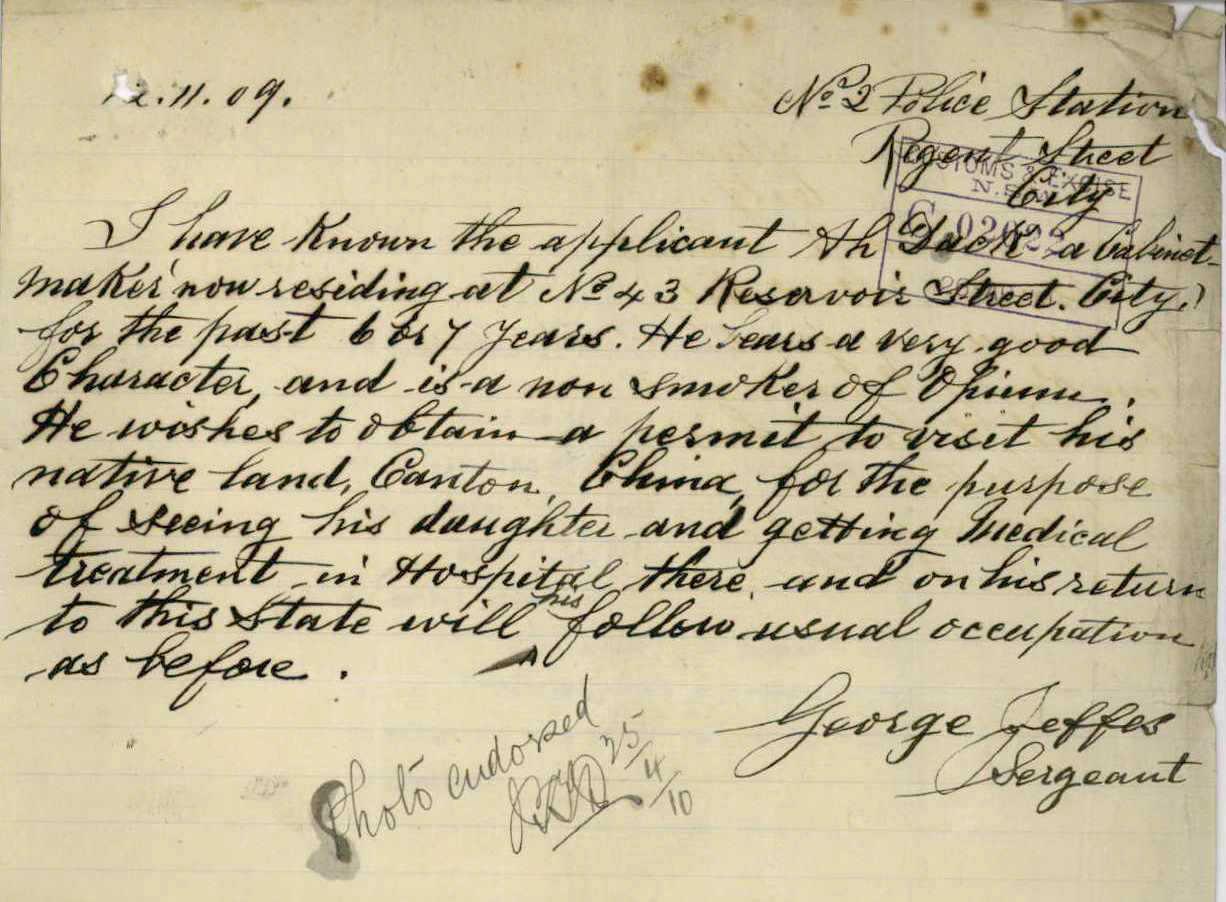 2.11.09.
No 2 Police Station
Regent Street
City
CUSTOMS & EXCISE
N.S.W.
I have Known the applicant Ah Duck (a Cabinet-
maker now residing at No 43 Reservoir Street. City,)
for the past 6 or 7 years. He bears a very good
Character, and is a non smoker of Opium.
He wishes to obtain a permit to visit his
native land, Canton, China, for the purpose
of seeing his daughter and getting Medical
treatment in Hospital there, and on his return
to this State will his follow usual occupation
as before.
George Jeffes
Sergeant
Photo endorsed
25/4/10